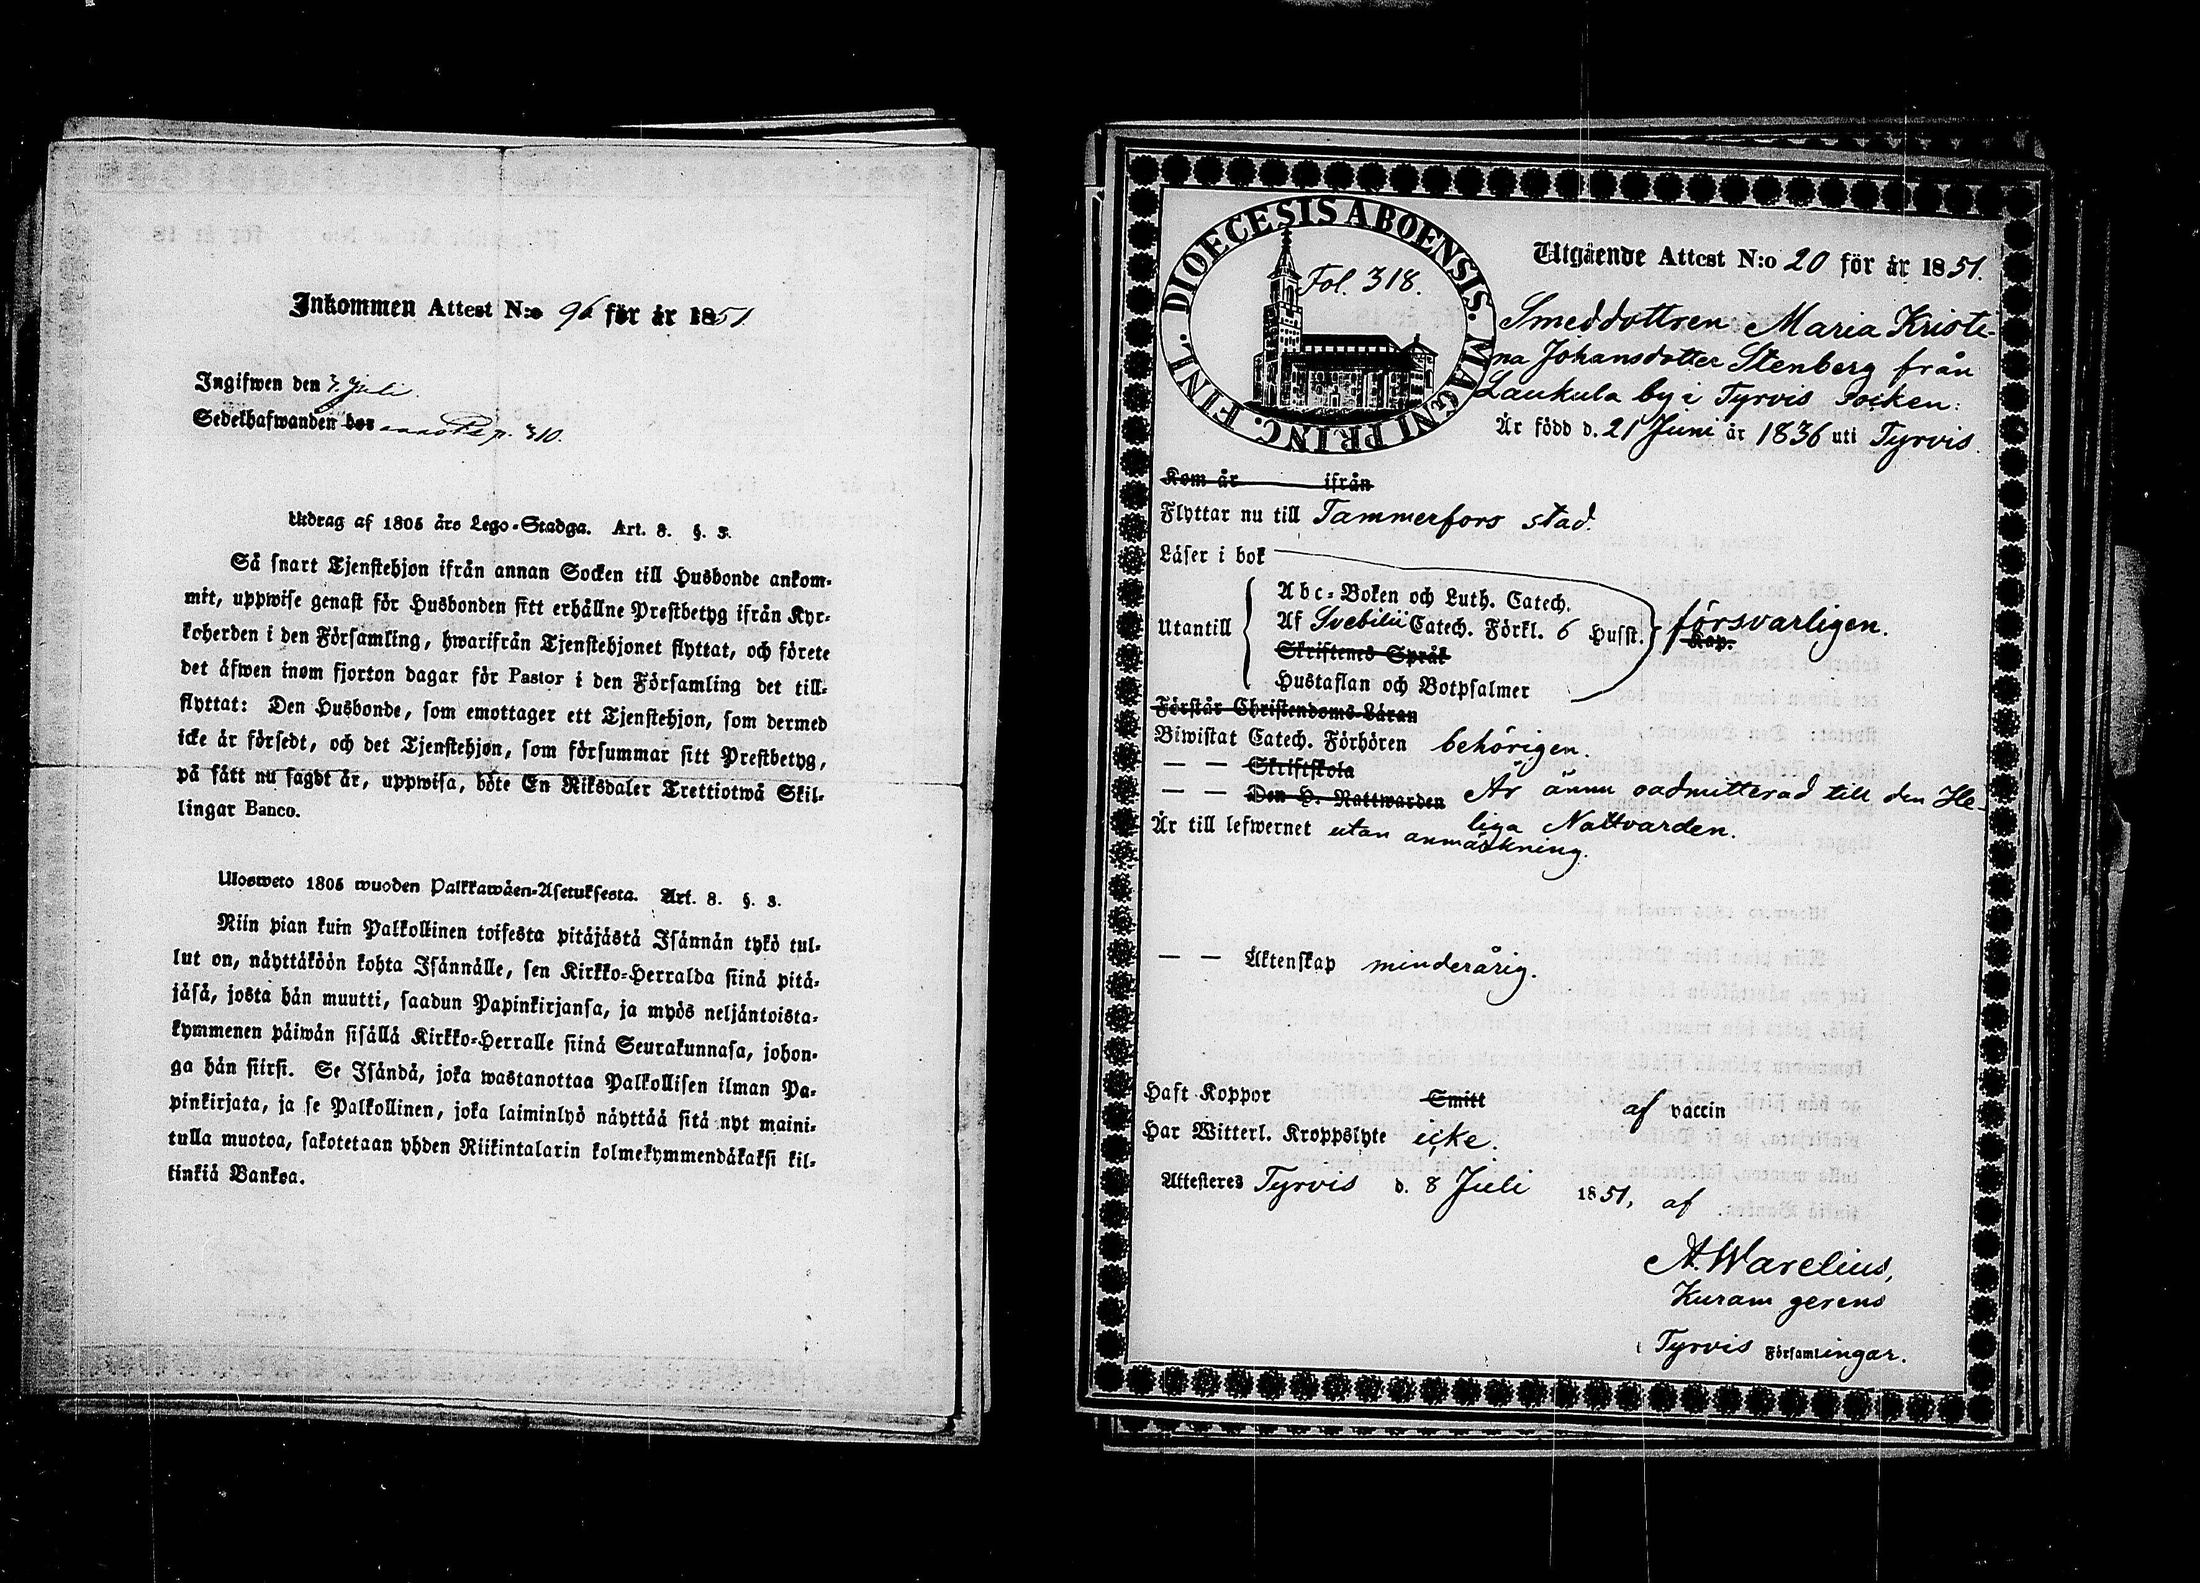 Inkommen Attest N:o 96 för år 1851.
Ingifwen den 3 Juli.
Sedelhafwanden p. 310.
Utdrag af 1805 års Lego-Stadga. Art. 8. §. 3.
Så snart Tjenstehjon ifrån annan Socken till Husbonde ankom-
mit, uppwise genast för Husbonden sitt erhållne Prestbetyg ifrån Kyr-
koherden i den Församling, hwarifrån Tjenstehjonet flyttat, och förete
det äfwen inom fjorton dagar för Pastor i den Församling det till-
flyttat: Den Husbonde, som emottager ett Tjenstehjon, som dermed
icke är försedt, och det Tjenstehjon, som försummar sitt Prestbetyg,
på sätt nu sagdt är, uppwisa, böte En Riksdaler Trettiotwå Skil-
lingar Banco.
Ulosweto 1805 wuoden Palkkawäen-Asetuksesta. Art. 8. §. 3.
Niin pian kuin Palkollinen toisesta pitäjästä Isännän tykö tul-
lut on, näyttäköön kohta Isännälle, sen Kirkko-Herralda siinä pitä-
jäsä, josta hän muutti, saadun Papinkirjansa, ja myös neljäntoista-
kymmenen päiwän sisällä Kirkko-Herralle siinä Seurakunnasa, johon-
ga hän siirsi. Se Isändä, joka wastanottaa Palkollisen ilman Pa-
pinkirjata, ja se Palkollinen, joka laiminlyö näyttää sitä nyt maini-
tulla muotoa, sakotetaan yhden Riikintalarin kolmekymmendäkaksi kil-
linkiä Bankoa.
DIOECESIS ABOENSIS. MAGNI PRINC. FINL.
Fol. 318.
Utgående Attest N:o 20 för år 1851.
Smeddottren Maria Kristi-
na Johansdotter Stenberg från
Laukula by i Tyrvis socken:
Är född d. 21 Juni år 1836 uti Tyrvis.
Kom år ifrån
Flyttar nu till Tammerfors stad.
Läser i bok
Utantill
Abc-Boken och Luth. Catech.
Af Svebilii Catech. Förkl. 6 Husst. försvarligen.
Kap.
Skriftenes Språk
Hustaflan och Botpsalmer
Förstår Christendoms-Läran
Biwistat Catech. Förhören behörigen.
— — Skriftskola
— — Den H. Nattwarden Är ännu oadmitterad till den He-
liga Nattvarden.
Är till lefwernet utan anmärkning.
— — Äktenskap minderårig.
Haft Koppor Smitt af vaccin
Har Witterl. Kroppslyte icke.
Attesteres Tyrvis d. 8 Juli 1851, af
A. Warelius,
Kuram gerens
i Tyrvis Församlingar.